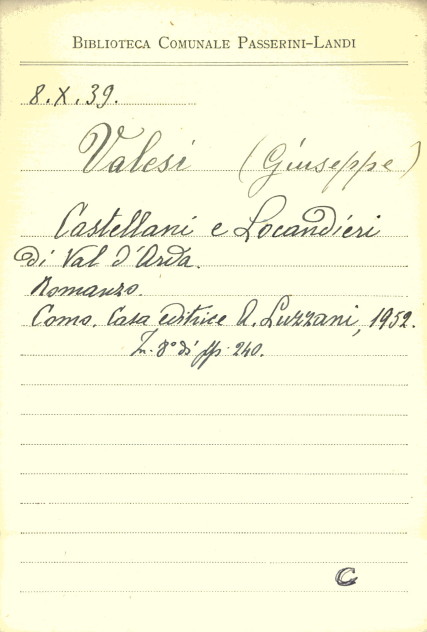 BIBLIOTECA COMUNALE PASSERINI-LANDI
8. X. 39.
Valesi (Giuseppe)
Castellani e Locandieri
di Val d'Arda.
Romanzo.
Como. Casa editrice A. Luzzani, 1952.
In 8° di pp. 240.
C